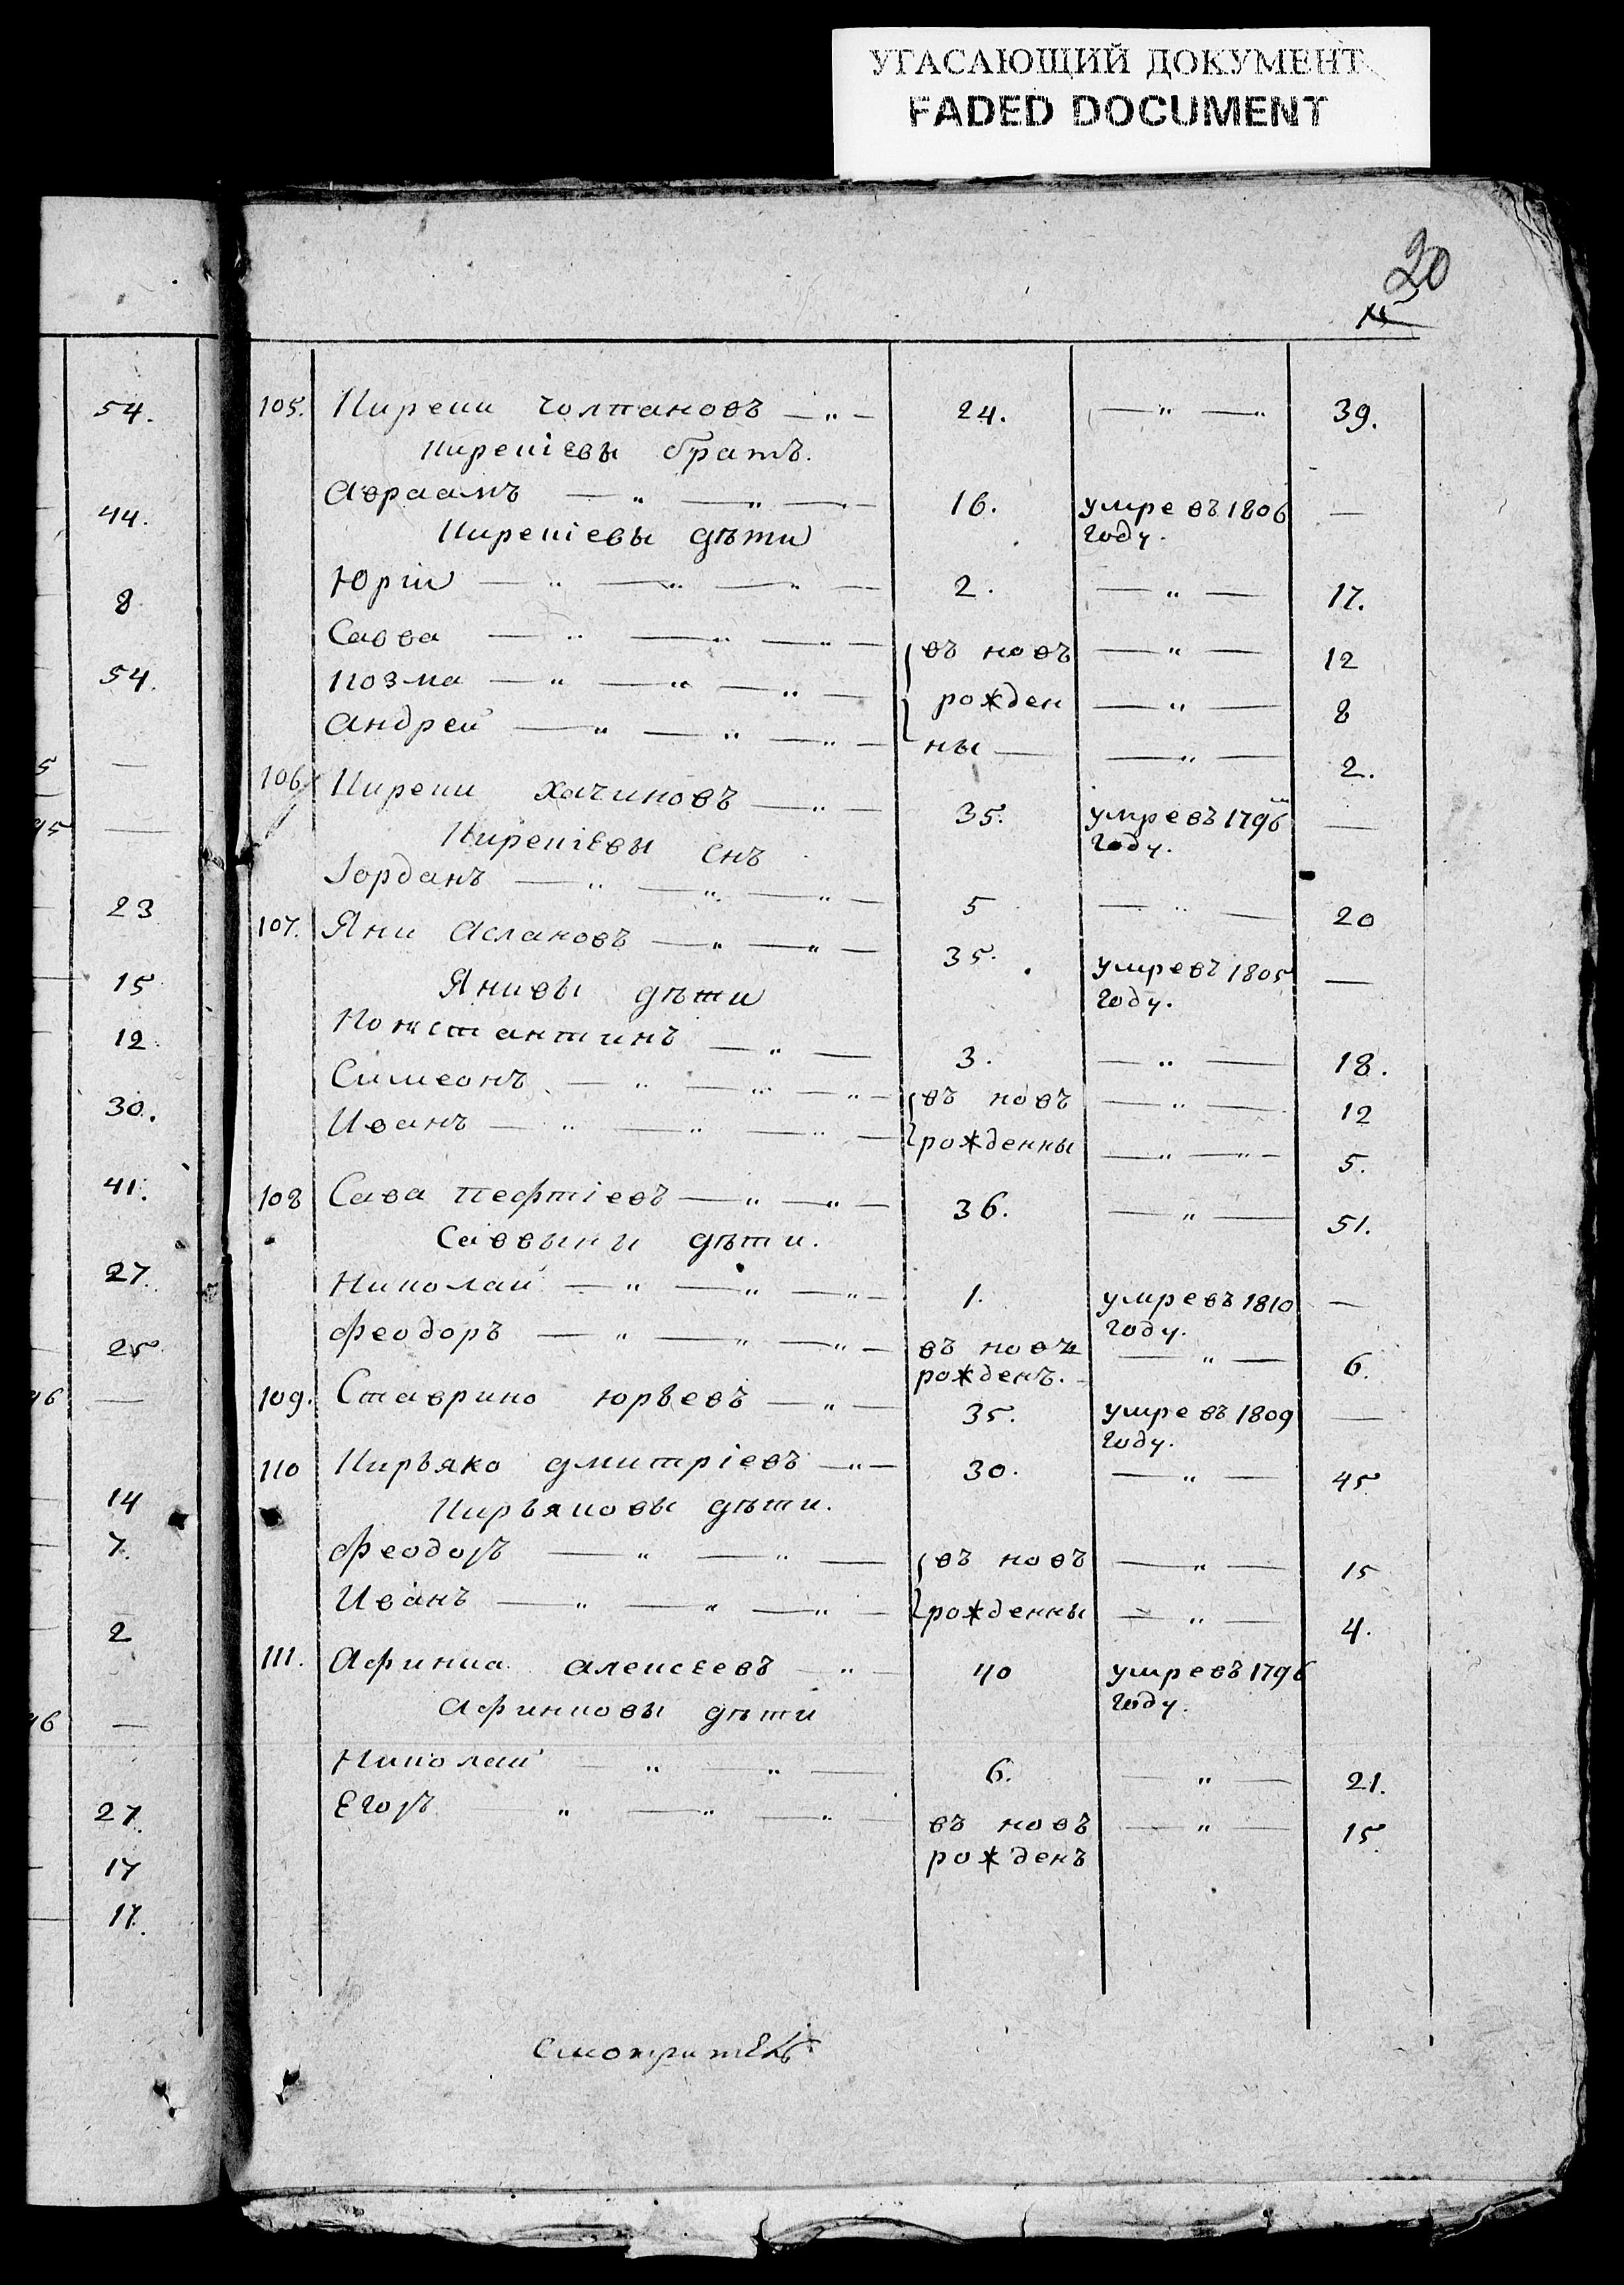 УГАСАЮЩИЙ ДОКУМЕНТ
FADED DOCUMENT
20
54.
44.
8
54.
—
—
23
15
12
30.
41.
27.
25
—
14
7.
2
—
27.
17
17.
105. Кирени Чолпановъ — „ — 24. — „ — „ 39.
Киреніевы братъ.
Авраамъ — „ — „ — 16. умре въ 1806 —
году.
Киреніевы дѣти
Юрій — „ — „ — „ — 2. — „ — 17.
Савва — „ — „ — „ — въ новъ — „ — 12
Козма — „ — „ — „ — рожден — „ — 8
Андрей — „ — „ — „ — ны — — „ — 2.
106 Кирени Хачиновъ — „ — 35. умре въ 1796 —
году.
Киреніевы снъ
Іорданъ — „ — „ — „ — 5 — „ — 20
107. Яни Аслановъ — „ — „ — 35. умре въ 1805 —
году.
Янивы дѣти
Константинъ — „ — 3. — „ — 18.
Симеонъ — „ — „ — „ — въ новъ — „ — 12
Иванъ — „ — „ — „ — рожденны — „ — „ — 5.
108 Сава Пефтіевъ — „ — „ — 36. — „ — 51.
Саввыни дѣти.
Николай — „ — „ — „ — 1. умре въ 1810 —
году.
Феодоръ — „ — „ — „ — въ новъ — „ — 6.
рожденъ.
109. Ставрино Юрьевъ — „ — 35. умре въ 1809 —
году.
110 Кирьяко Дмитріевъ — „ — 30. — „ — 45
Кирьяковы дѣти.
Феодоръ — „ — „ — въ новъ — „ — 15
Иванъ — „ — „ — „ — рожденны — „ — 4.
111. Афинка Алексеевъ — „ — 40 умре въ 1796
году.
Афинковы дѣти
Николай — „ — „ — 6. — „ — 21.
Егоръ — „ — „ — „ — въ новъ — „ — 15
рожденъ
Смотритель